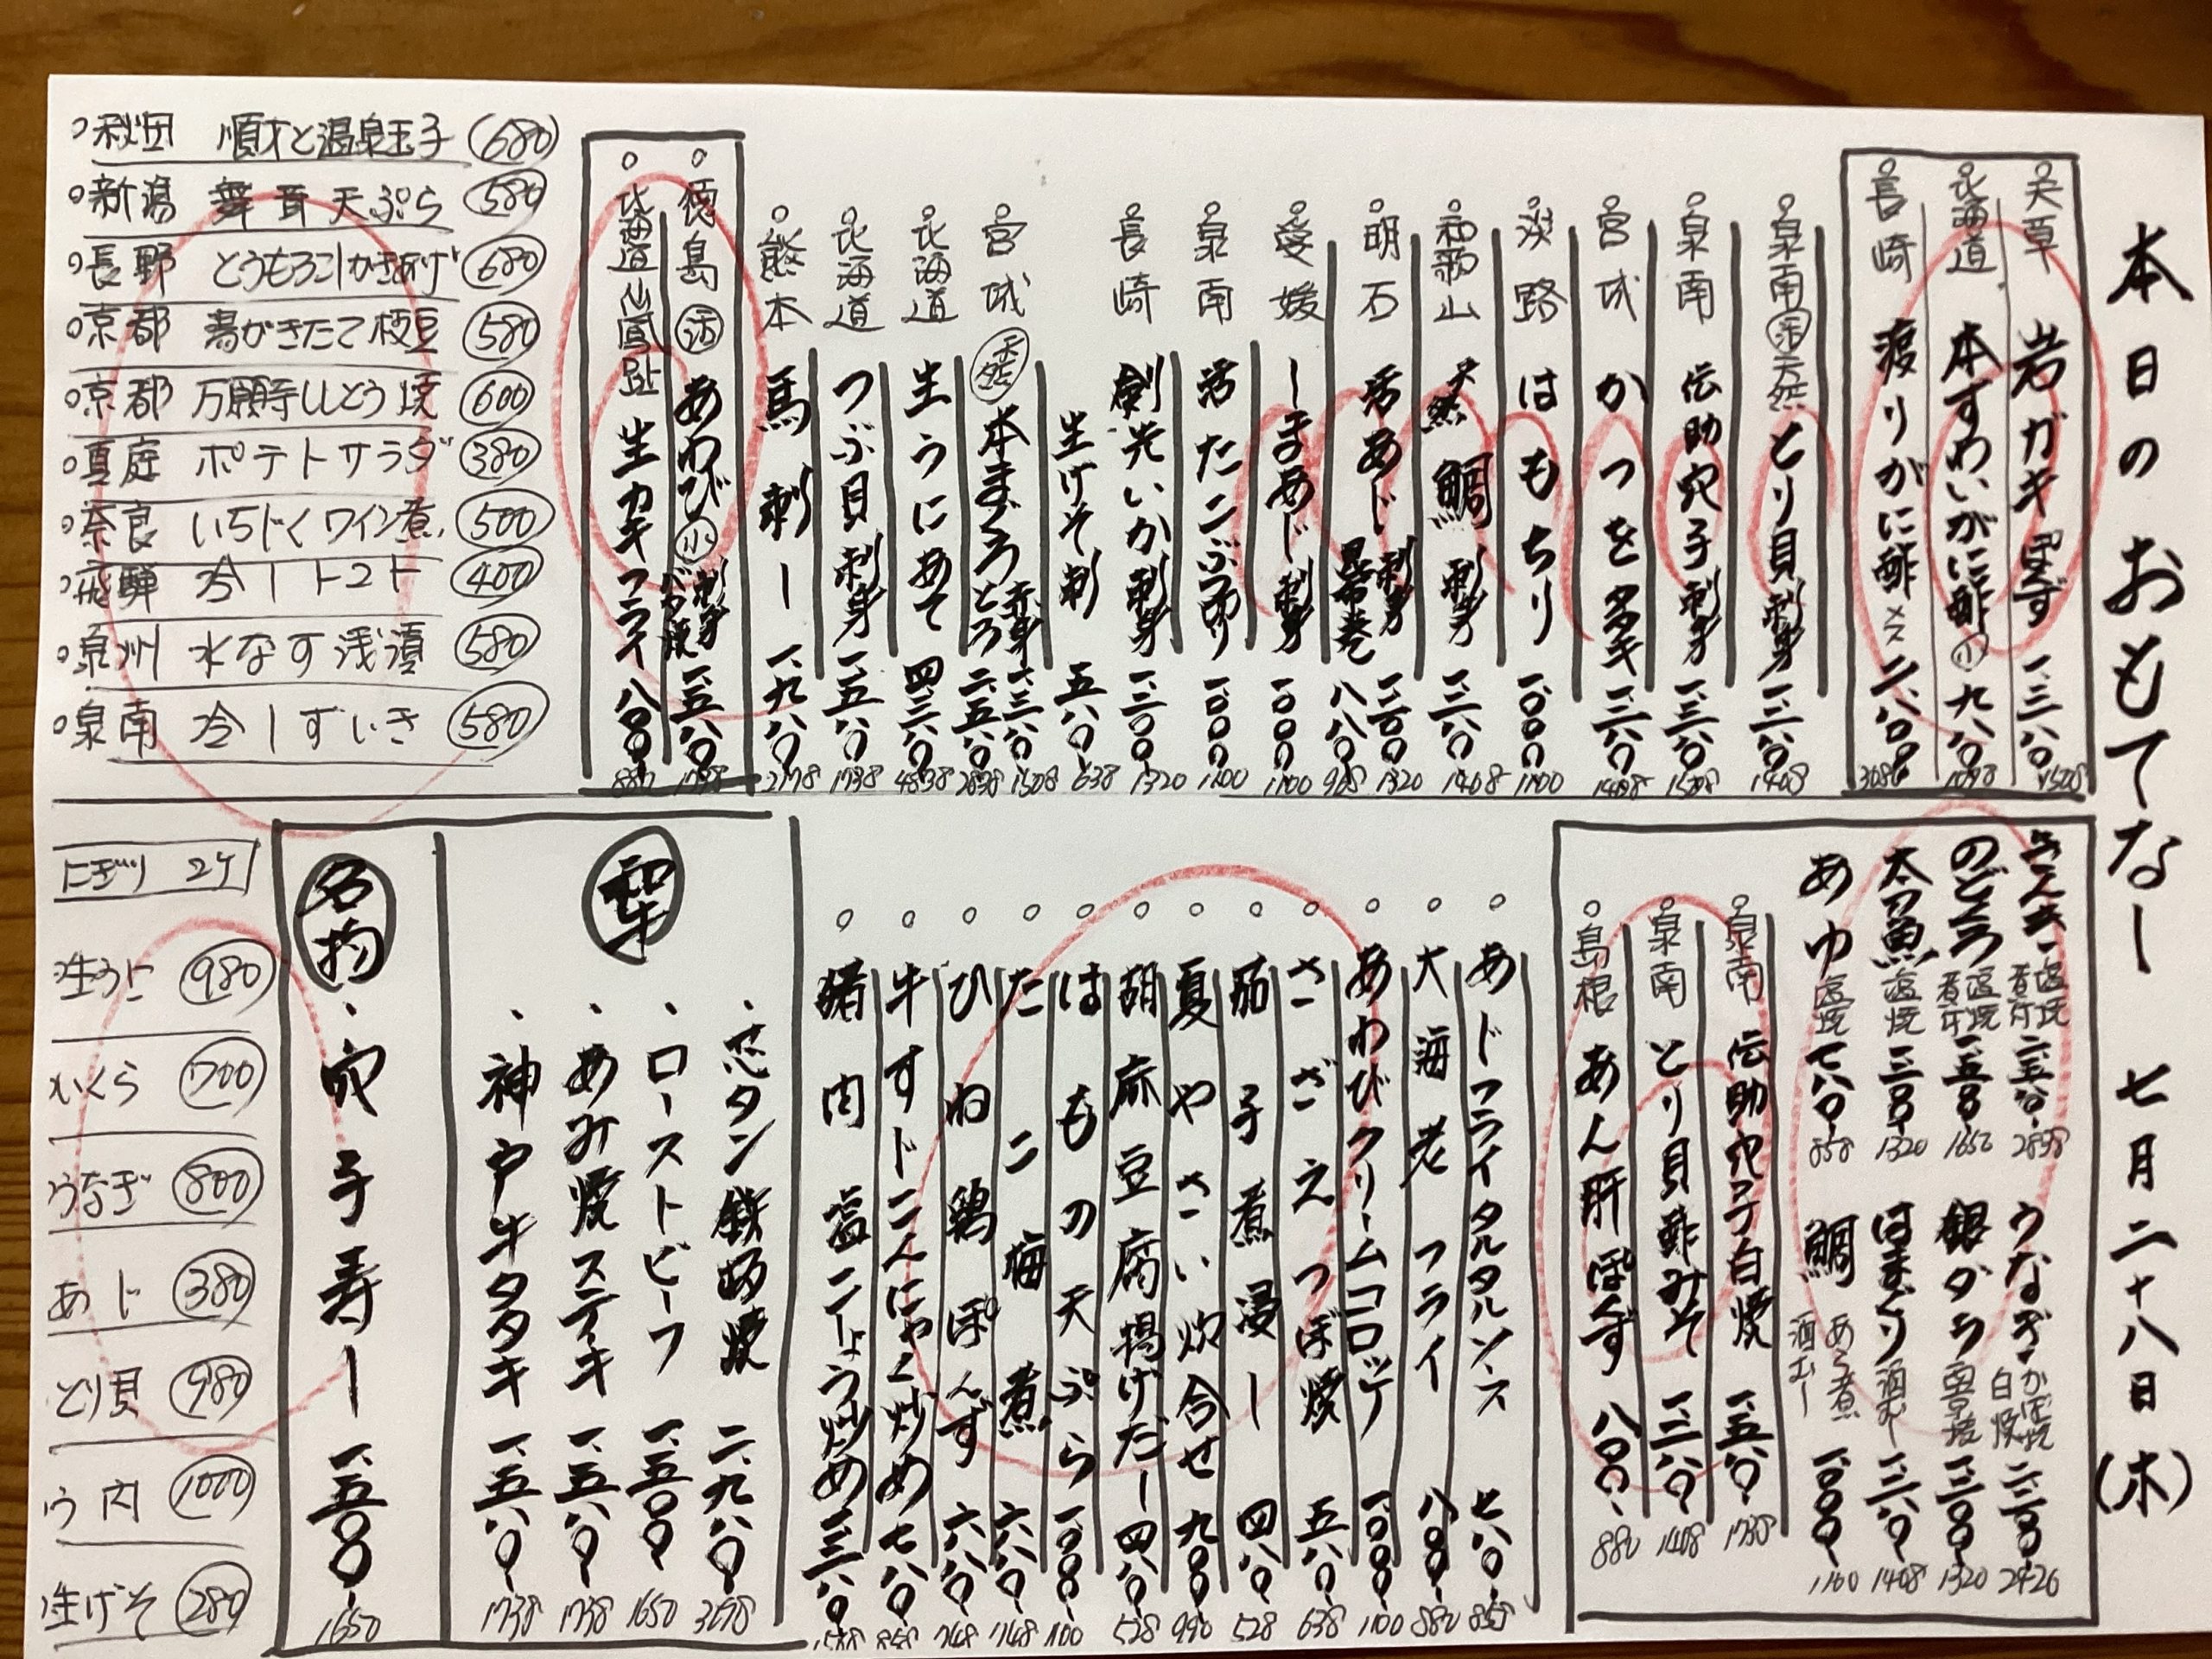 本日のおもてなし 七月二十八日(木)
天草 岩ガキ ぽんず 一、三八〇 1508
北海道 本ずわいがに酢 小 九八〇 1098
長崎 渡りがに酢 メス 二、八〇〇 3080
泉南 活 天然 とり貝 刺身 一、二八〇 1408
泉南 伝助穴子 刺身 一、三八〇 1508
宮城 かつをタタキ 一、二八〇 1408
淡路 はもちり 一、〇〇〇 1100
和歌山 天然 鯛 刺身 一、二八〇 1408
明石 活あじ 刺身 一、二〇〇 1320
昆布巻 八八〇 968
愛媛 しまあじ 刺身 一、〇〇〇 1100
泉南 活たこぶつ切り 一、〇〇〇 1100
長崎 剣先いか 刺身 一、二〇〇 1320
生げそ刺 五八〇 638
宮城 天然 本まぐろ 赤身 一、三八〇 1508
とろ 二、五八〇 2838
北海道 生うにあて 四、三八〇 4838
北海道 つぶ貝 刺身 一、五八〇 1738
熊本 馬刺し 一、九八〇 2178
徳島 活 あわび 小 刺身 バタ焼 一、五八〇 1738
北海道 仙鳳趾 生カキフライ 八〇〇 880
秋田 順才と温泉玉子 680
新潟 舞茸天ぷら 580
長野 とうもろこしかきあげ 680
京都 湯がきたて枝豆 580
京都 万願寺ししとう焼 600
真庭 ポテトサラダ 380
奈良 いちじくワイン煮 500
飛騨 冷しトマト 400
泉州 水なす浅漬 580
泉南 冷しずいき 580
塩焼 煮付 2838
のどぐろ 塩焼 煮付 一、五〇〇 1650
太刀魚 塩焼 一、二〇〇 1320
あゆ 塩焼 七八〇 858
うなぎ かば焼 白焼 二、二〇〇 2420
銀ダラ 西京焼 一、二〇〇 1320
はまぐり 酒むし 一、二八〇 1408
鯛 あら煮 酒むし 一、〇〇〇 1100
泉南 伝助穴子白焼 一、五八〇 1738
泉南 とり貝酢みそ 一、二八〇 1408
島根 あん肝ぽんず 八〇〇 880
あじフライタルタルソース 七八〇 858
大海老フライ 八〇〇 880
あわびクリームコロッケ 一、〇〇〇 1100
さざえつぼ焼 五八〇 638
茄子煮浸し 四八〇 528
夏やさい炊合せ 九〇〇 990
胡麻豆腐揚げだし 四八〇 528
はもの天ぷら 一、〇〇〇 1100
たこ梅煮 六八〇 748
ひね鶏ぽんず 六八〇 748
牛すじこんにゃく炒め 七八〇 858
猪肉塩こしょう炒め 一、三八〇
和牛
芯タン鉄板焼 二、九八〇
ローストビーフ 一、五〇〇 1650
あみ焼ステーキ 一、五八〇 1738
神戸牛タタキ 一、五八〇 1738
名物
穴子寿し 一、五〇〇 1650
にぎり 2ケ
生うに 980
いくら 700
うなぎ 800
あじ 380
とり貝 980
1000
生げそ 280